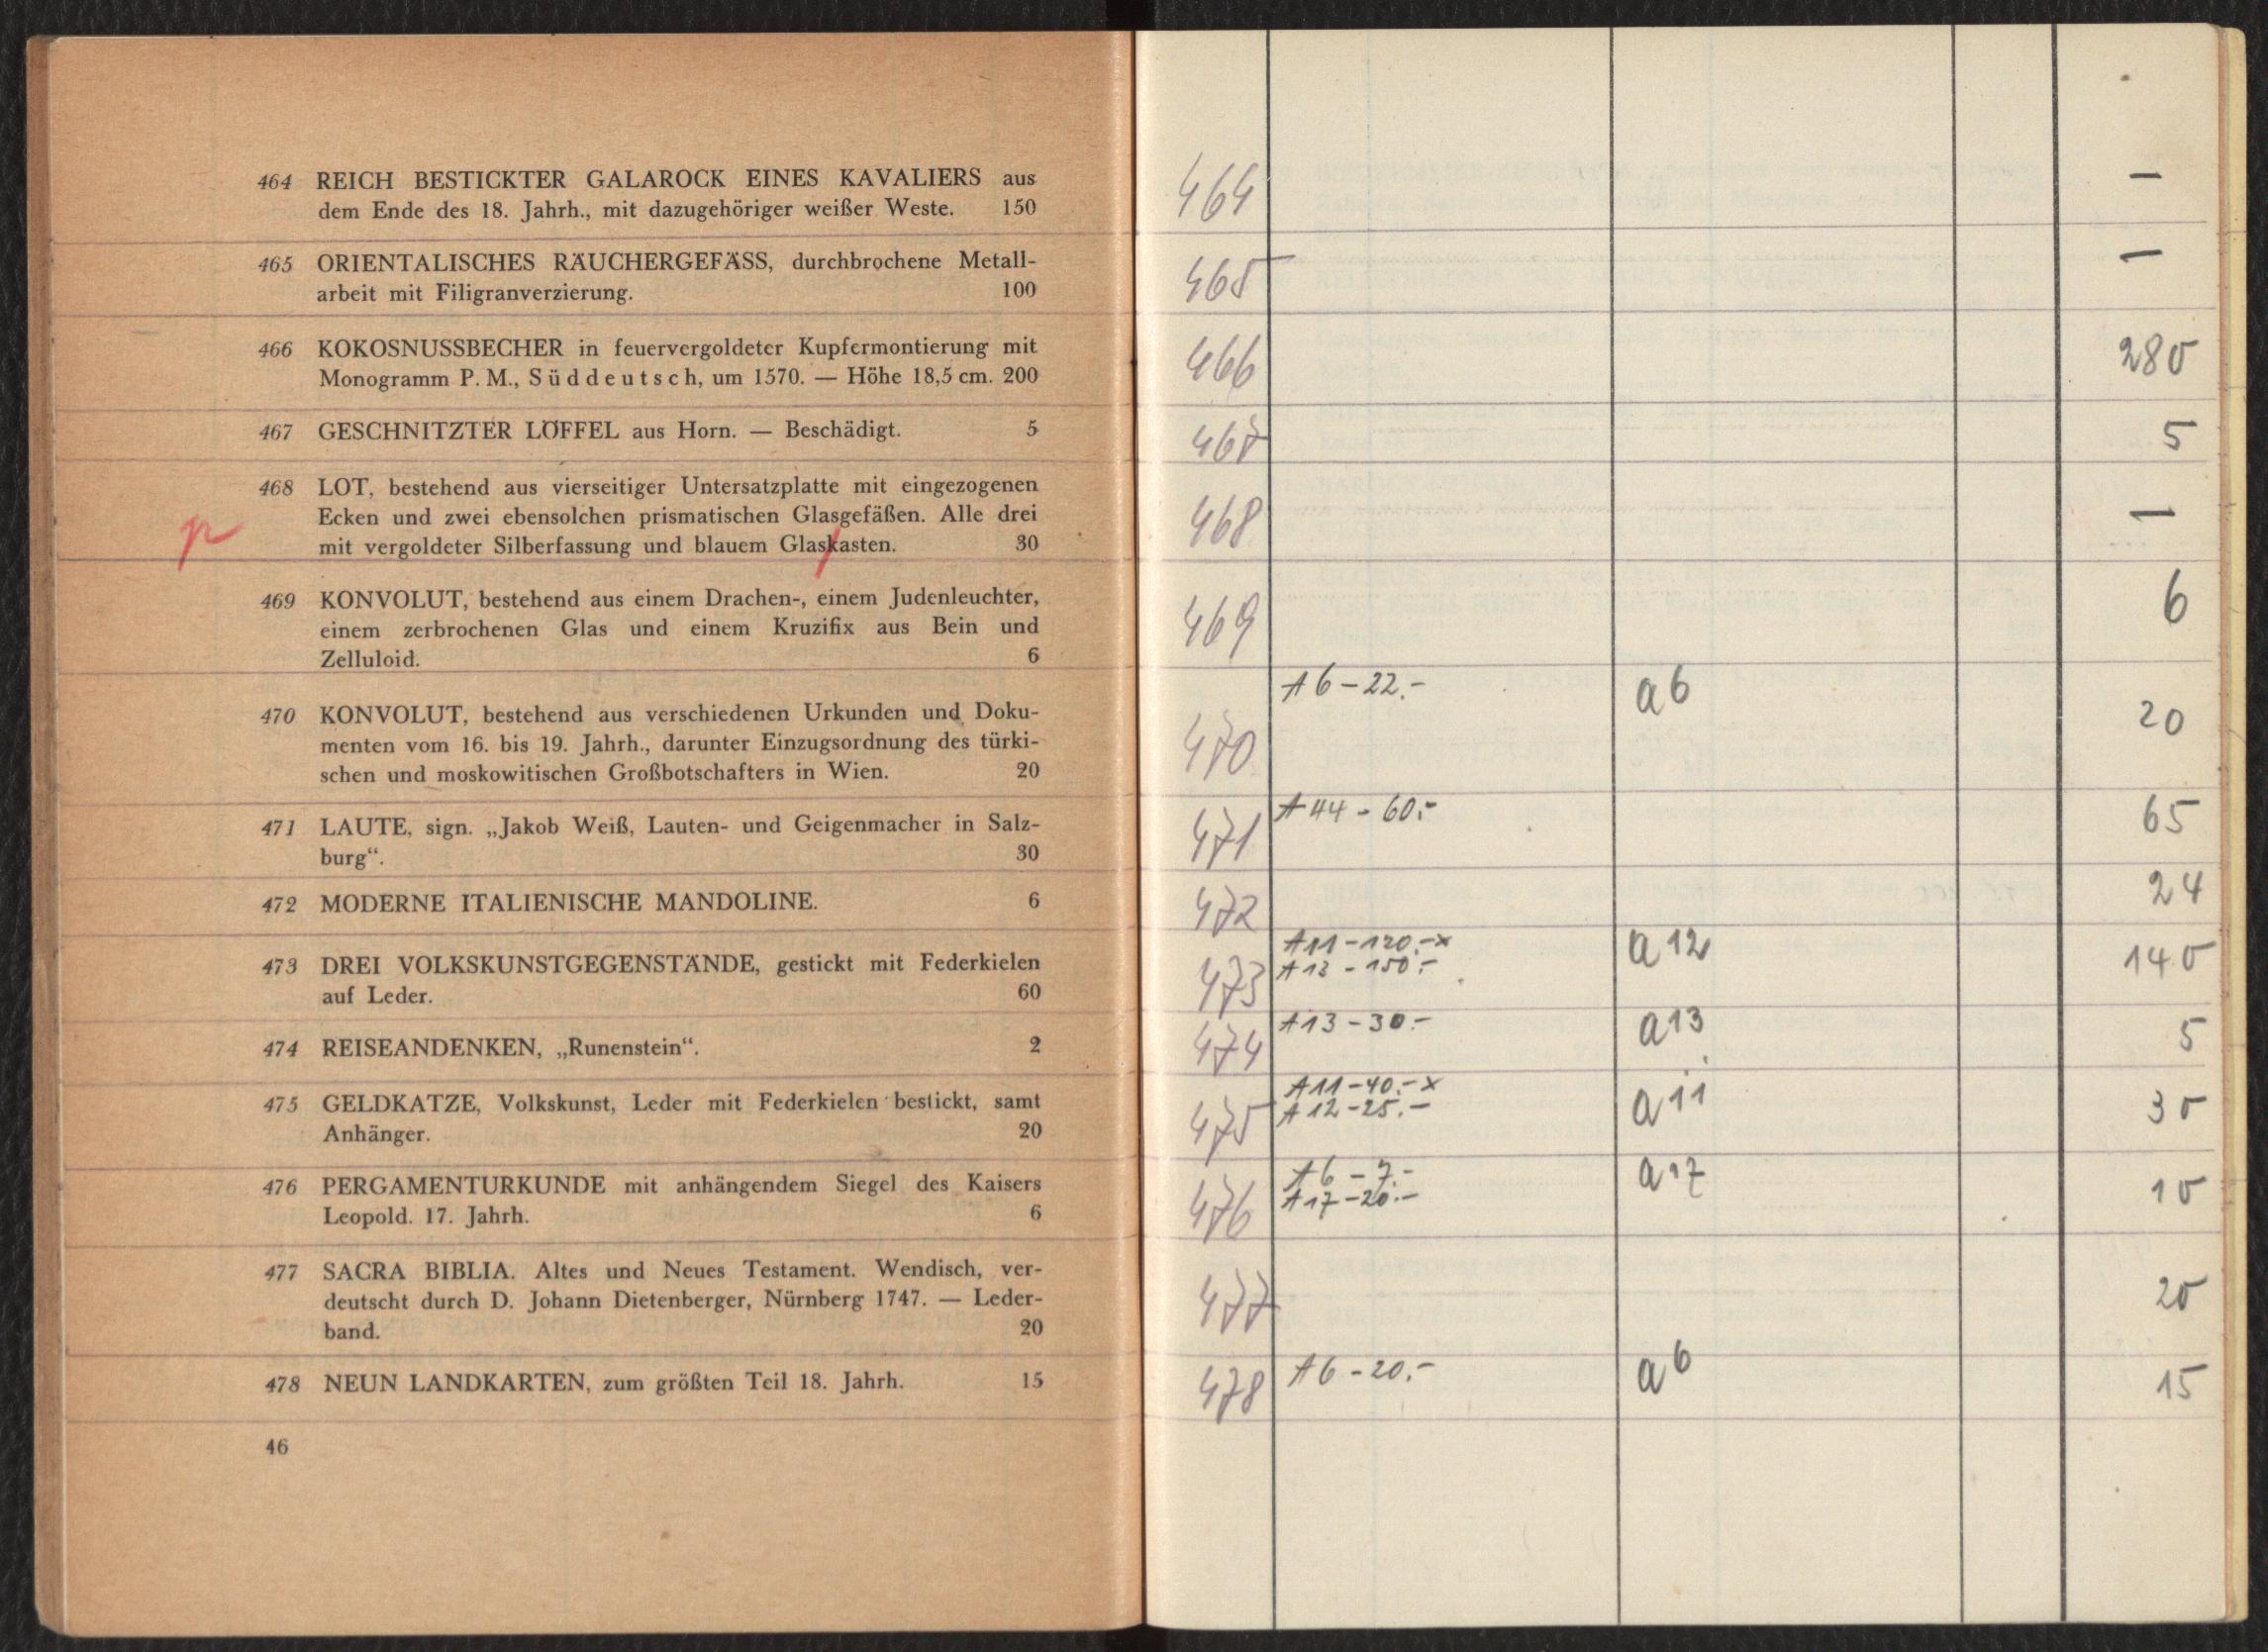 464 REICH BESTICKTER GALAROCK EINES KAVALIERS aus
dem Ende des 18. Jahrh., mit dazugehöriger weißer Weste. 150
465 ORIENTALISCHES RÄUCHERGEFÄSS, durchbrochene Metall-
arbeit mit Filigranverzierung. 100
466 KOKOSNUSSBECHER in feuervergoldeter Kupfermontierung mit
Monogramm P. M., Süddeutsch, um 1570. — Höhe 18,5 cm. 200
467 GESCHNITZTER LÖFFEL aus Horn. — Beschädigt. 5
468 LOT, bestehend aus vierseitiger Untersatzplatte mit eingezogenen
Ecken und zwei ebensolchen prismatischen Glasgefäßen. Alle drei
mit vergoldeter Silberfassung und blauem Glaskasten. 30
469 KONVOLUT, bestehend aus einem Drachen-, einem Judenleuchter,
einem zerbrochenen Glas und einem Kruzifix aus Bein und
Zelluloid. 6
470 KONVOLUT, bestehend aus verschiedenen Urkunden und Doku-
menten vom 16. bis 19. Jahrh., darunter Einzugsordnung des türki-
schen und moskowitischen Großbotschafters in Wien. 20
471 LAUTE, sign. „Jakob Weiß, Lauten- und Geigenmacher in Salz-
burg“. 30
472 MODERNE ITALIENISCHE MANDOLINE. 6
473 DREI VOLKSKUNSTGEGENSTÄNDE, gestickt mit Federkielen
auf Leder. 60
474 REISEANDENKEN, „Runenstein“. 2
475 GELDKATZE, Volkskunst, Leder mit Federkielen bestickt, samt
Anhänger. 20
476 PERGAMENTURKUNDE mit anhängendem Siegel des Kaisers
Leopold. 17. Jahrh. 6
477 SACRA BIBLIA. Altes und Neues Testament. Wendisch, ver-
deutscht durch D. Johann Dietenberger, Nürnberg 1747. — Leder-
band. 20
478 NEUN LANDKARTEN, zum größten Teil 18. Jahrh. 15
46
464 —
465 —
466 280
467 5
468 —
469 6
A 6 – 22.– a 6
470 20
A 44 – 60.–
471 65
472 24
A 11 – 120.– x a 12
473 A 12 – 150.– 140
A 13 – 30.– a 13
474 5
A 11 – 40.– x a 11
475 A 12 – 25.– 30
A 6 – 7.– a 17
476 A 17 – 20.– 10
477 20
478 A 6 – 20.– a 6 15